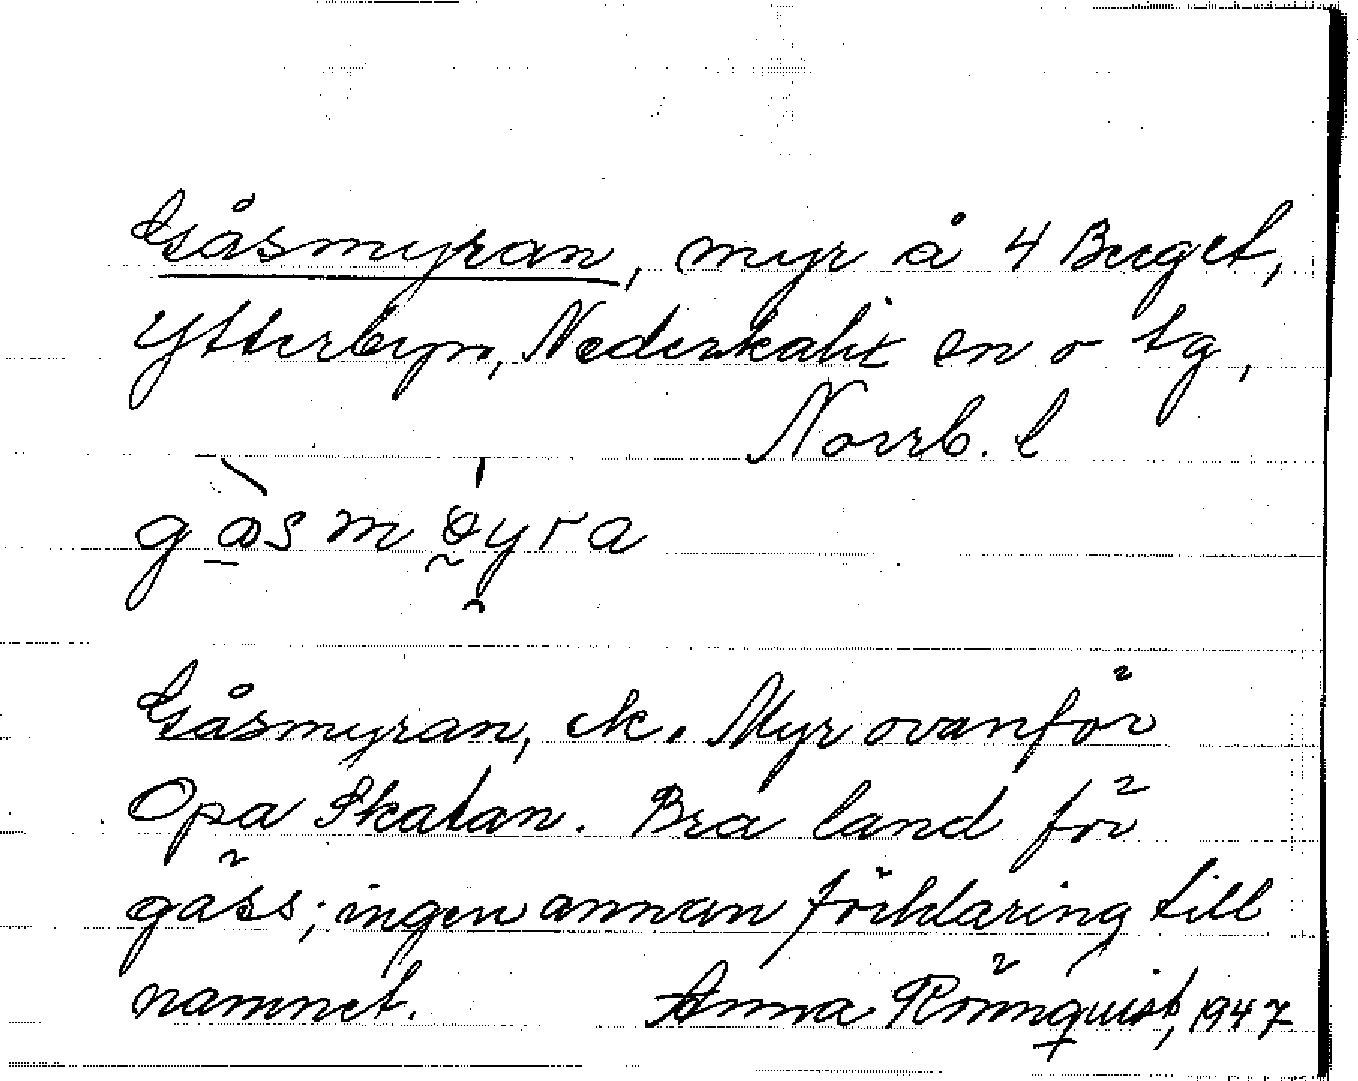 Gåsmyran, myr å 4 Berget,
Ytterbyn, Nederkalix sn o tg,
Norrb. l
Gåsmyran, ek. Myr ovanför
Opa Skatan. Bra land för
gäss; ingen annan förklaring till
namnet. Anna Rönnquist, 1947